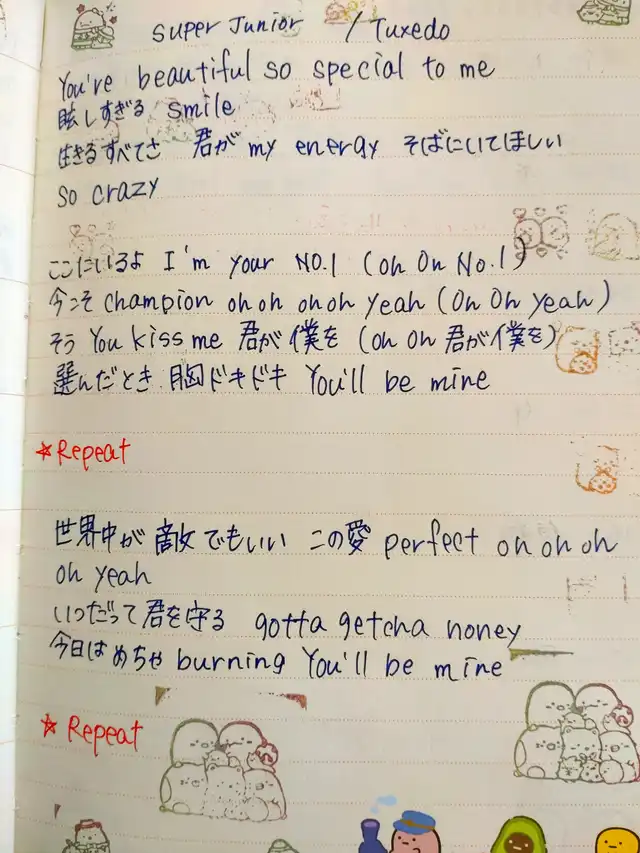 SUPER Junior / Tuxedo
You're beautiful so special to me
眩しすぎる smile
生きるすべてさ 君が my energy そばにいてほしい
so crazy
ここにいるよ I'm your NO.1 (oh Oh No.1)
今こそ champion oh oh oh oh yeah (Oh Oh yeah)
そう You kiss me 君が僕を (oh Oh 君が僕を)
選んだとき 胸ドキドキ You'll be mine
☆Repeat
世界中が敵でもいい この愛 perfect oh oh oh
oh yeah
いつだって君を守る gotta getcha honey
今日はめちゃ burning You'll be mine
☆ Repeat